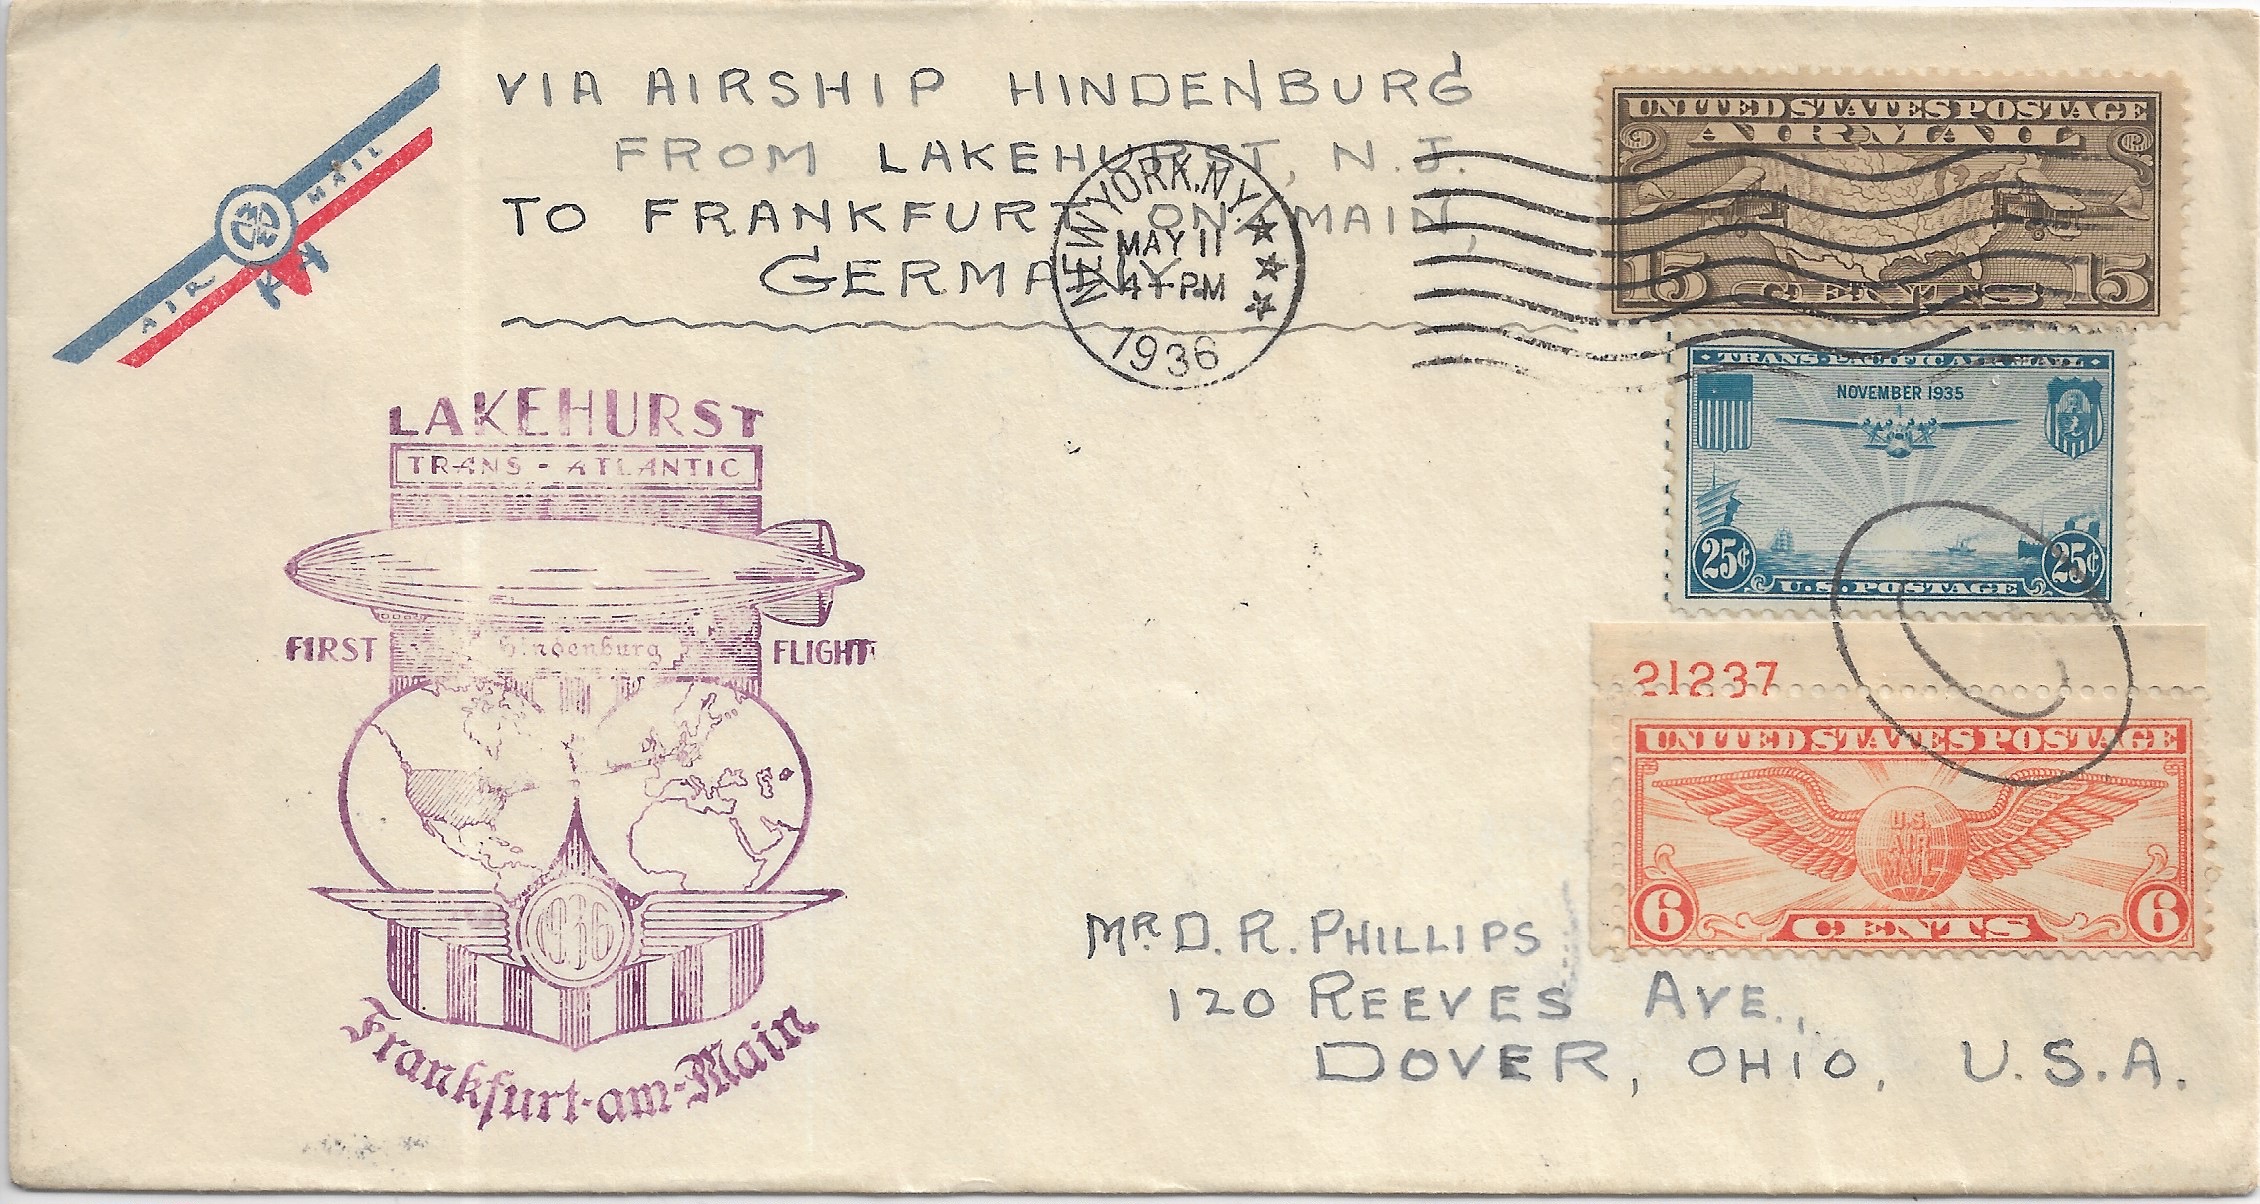 VIA AIRSHIP HINDENBURG
FROM LAKEHURST, N.J.
TO FRANKFURT ON MAIN,
GERMANY
AIR MAIL
NEW YORK, N.Y.
MAY 11
4-PM
1936
UNITED STATES POSTAGE
AIR MAIL
15 CENTS 15
TRANS-PACIFIC AIR MAIL
NOVEMBER 1935
25¢ 25¢
U.S. POSTAGE
21237
UNITED STATES POSTAGE
U.S.
AIR
MAIL
6 CENTS 6
LAKEHURST
TRANS-ATLANTIC
FIRST Hindenburg FLIGHT
1936
Frankfurt-am-Main
MR. D. R. PHILLIPS
120 REEVES AVE.,
DOVER, OHIO, U.S.A.